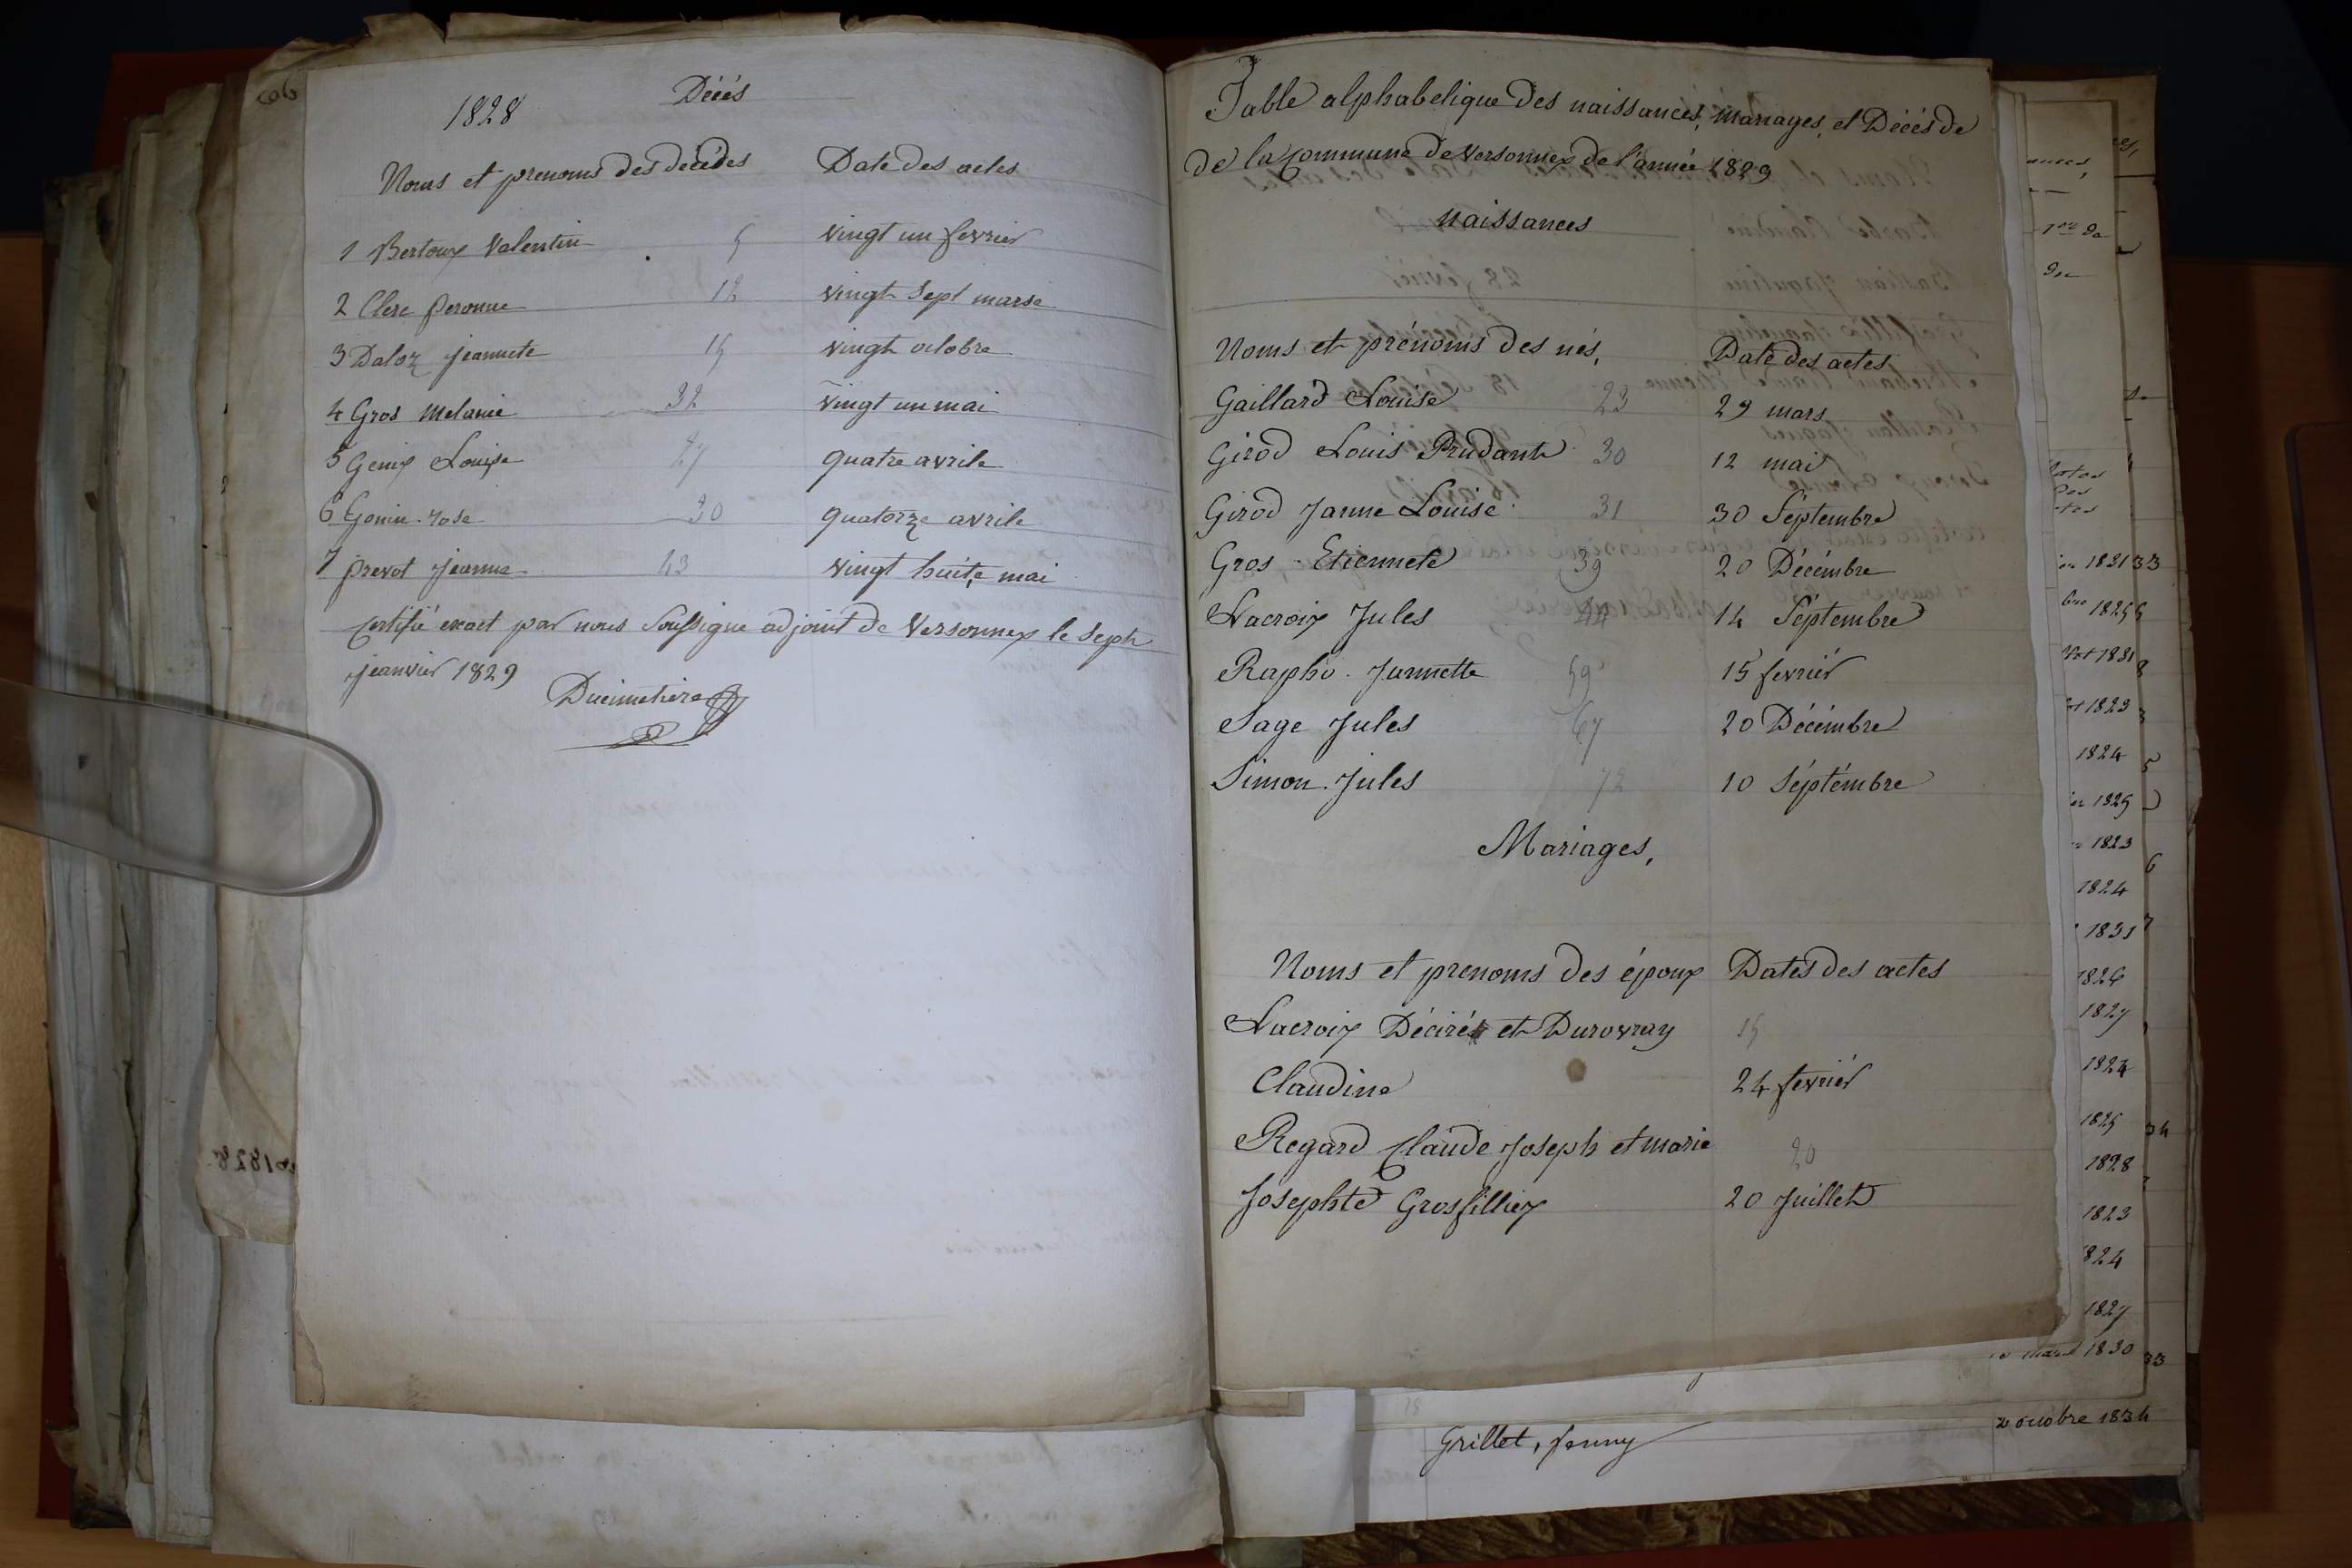 1828
Décès
Noms et prenoms des decédes Date des actes
1 Bertoux Valentin 5 vingt un fevrier
2 Clerc peronne 12 vingt Sept marse
3 Daloz jeannete 15 vingt octobre
4 Gros melanie 32 vingt un mai
5 Genix Louise 27 quatre avrile
6 Gonin rose 30 quatorze avrile
7 prevot jeanne 43 vingt huite mai
certifié exact par nous Soussigne adjoint de Versonnex le Sept
jeanvier 1829
Ducimetiere
Table alphabetique des naissances, mariages, et Décés de
de la Commune de Versonnex de l'année 1829
naissances
Noms et prénoms des nés, Date des actes
Gaillard Louise 23 29 mars
Girod Louis Prudant 30 12 mai
Girod Janne Louise 31 30 Septembre
Gros Etiennete 39 20 Décémbre
Lacroix Jules 44 14 Séptembre
Rapho Jannette 59 15 fevriér
Sage Jules 67 20 Décémbre
Simon Jules 72 10 Séptémbre
Mariages,
Noms et prenoms des époux Dates des actes
Lacroix Déciré et Durovray 15
Claudine 24 fevriér
Regard Claude Joseph et marie 20
Josephte Grosfilliex 20 Juillet
Grillet, jenny 20 octobre 1834
1821 33
1825
1831
1823
1824 5
1825
1823
6
1824
1831 7
1826
1827
1824
1825 34
1828
1823
824
1827
mars 1830 33
1828